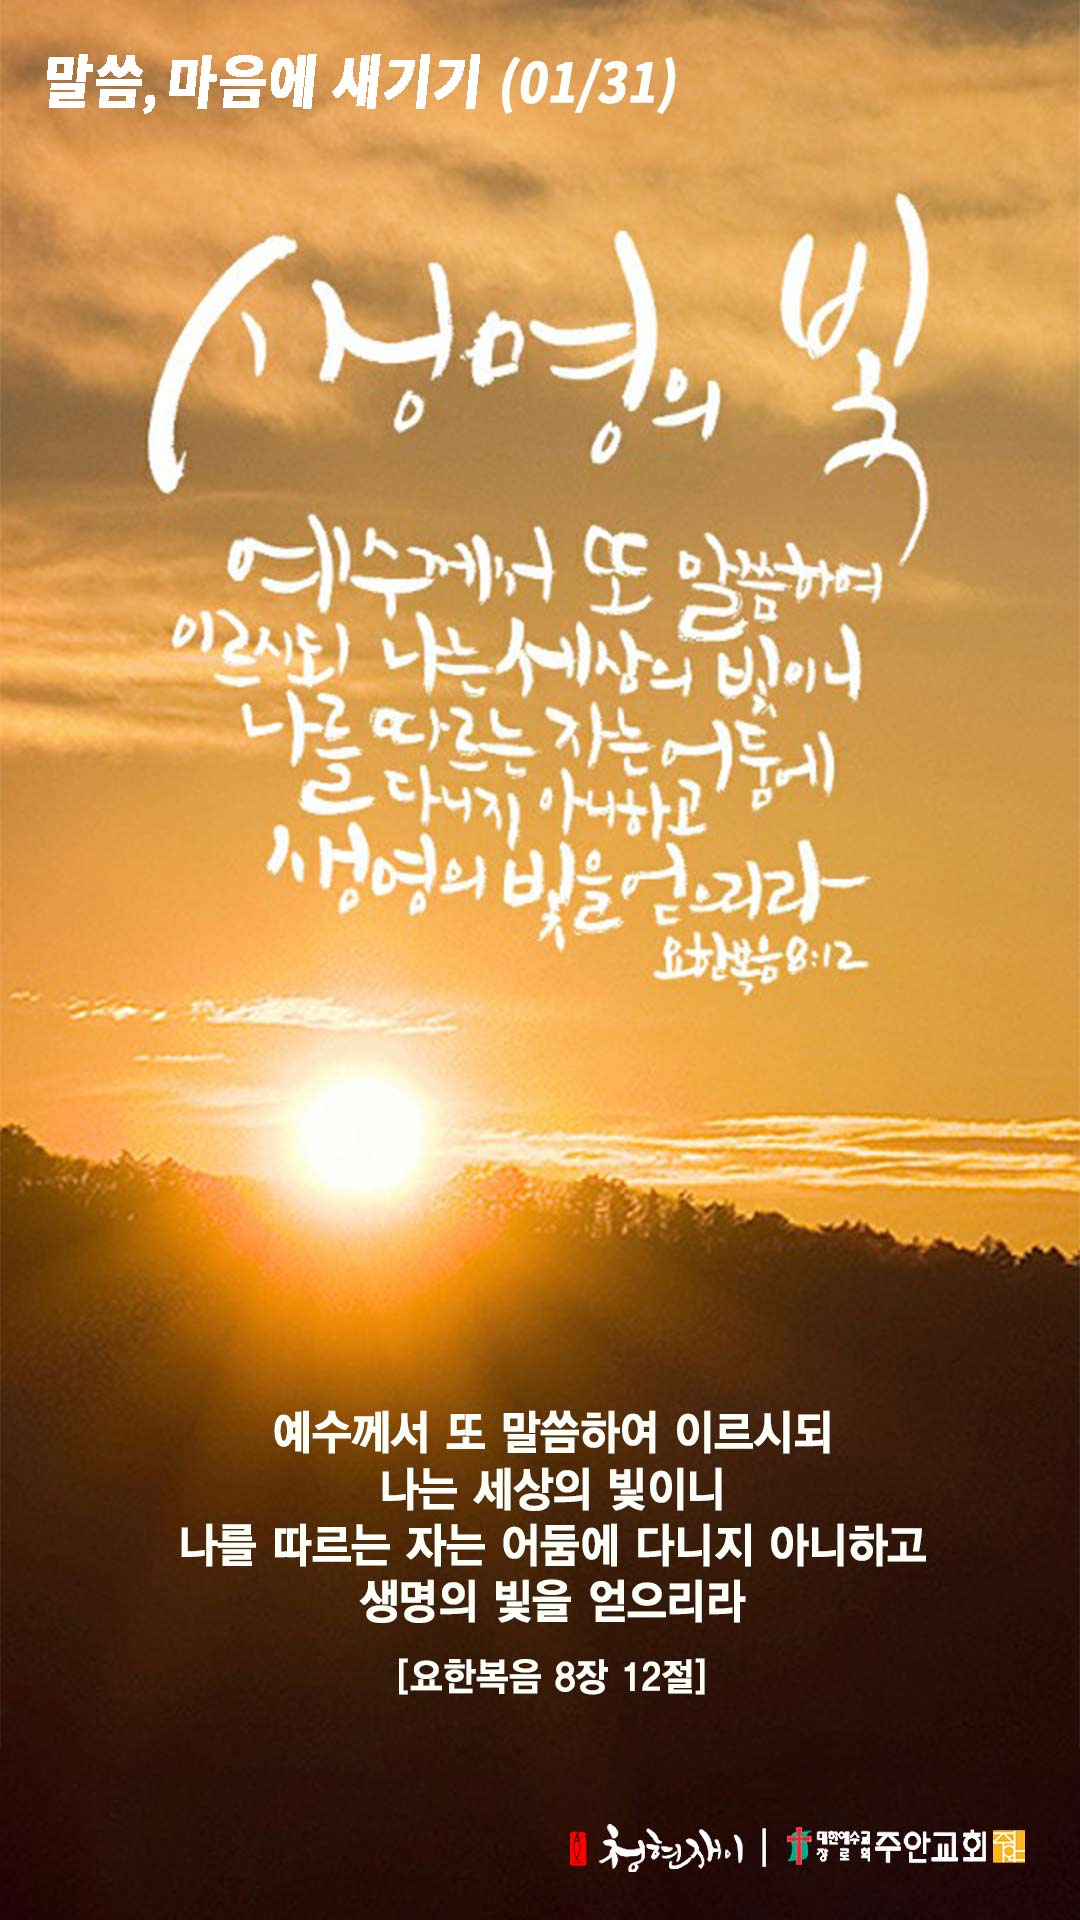 말씀, 마음에 새기기 (01/31)
생명의 빛
예수께서 또 말씀하여
이르시되 나는 세상의 빛이니
나를 따르는 자는 어둠에
다니지 아니하고
생명의 빛을 얻으리라
요한복음 8:12
예수께서 또 말씀하여 이르시되
나는 세상의 빛이니
나를 따르는 자는 어둠에 다니지 아니하고
생명의 빛을 얻으리라
[요한복음 8장 12절]
청현재이 | 대한예수교
장로회 주안교회